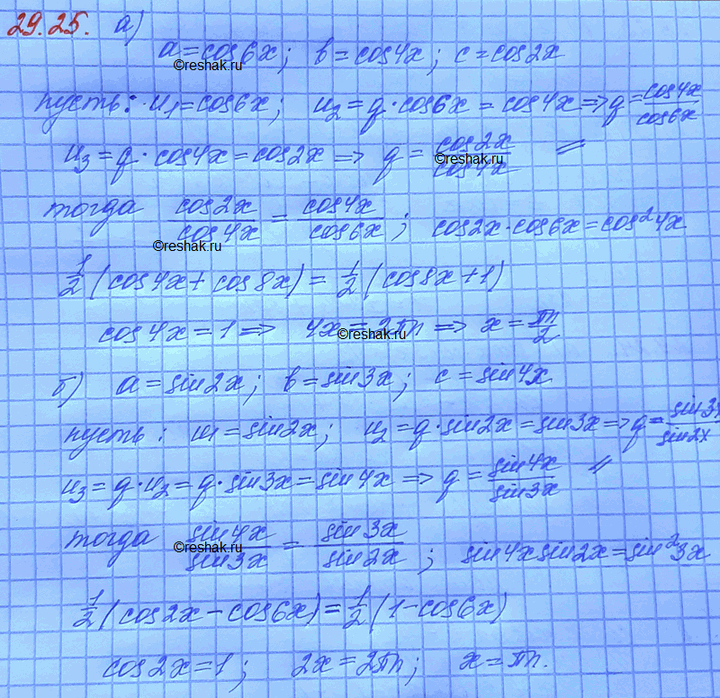 29.25. а)
a = cos6x; b = cos4x; c = cos2x
©reshak.ru
пусть: u₁ = cos6x; u₂ = q · cos6x = cos4x ⇒ q = cos4x/cos6x
u₃ = q · cos4x = cos2x ⇒ q = cos2x/cos4x //
©reshak.ru
тогда cos2x/cos4x = cos4x/cos6x; cos2x · cos6x = cos²4x
©reshak.ru
1/2 (cos4x + cos8x) = 1/2 (cos8x + 1)
cos4x = 1 ⇒ 4x = 2πn ⇒ x = πn/2
©reshak.ru
б) a = sin2x; b = sin3x; c = sin4x
пусть: u₁ = sin2x; u₂ = q · sin2x = sin3x ⇒ q = sin3x/sin2x
u₃ = q · u₂ = q · sin3x = sin4x ⇒ q = sin4x/sin3x //
тогда sin4x/sin3x = sin3x/sin2x; sin4x sin2x = sin²3x
©reshak.ru
1/2 (cos2x - cos6x) = 1/2 (1 - cos6x)
cos2x = 1; 2x = 2πn; x = πn.